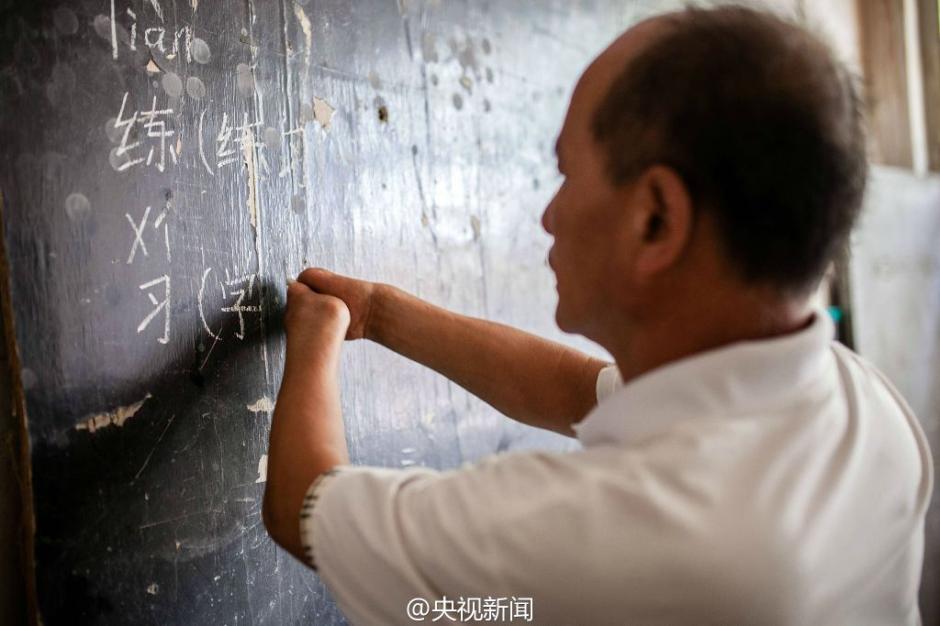 lian
练(练习
xi
习(学
@央视新闻